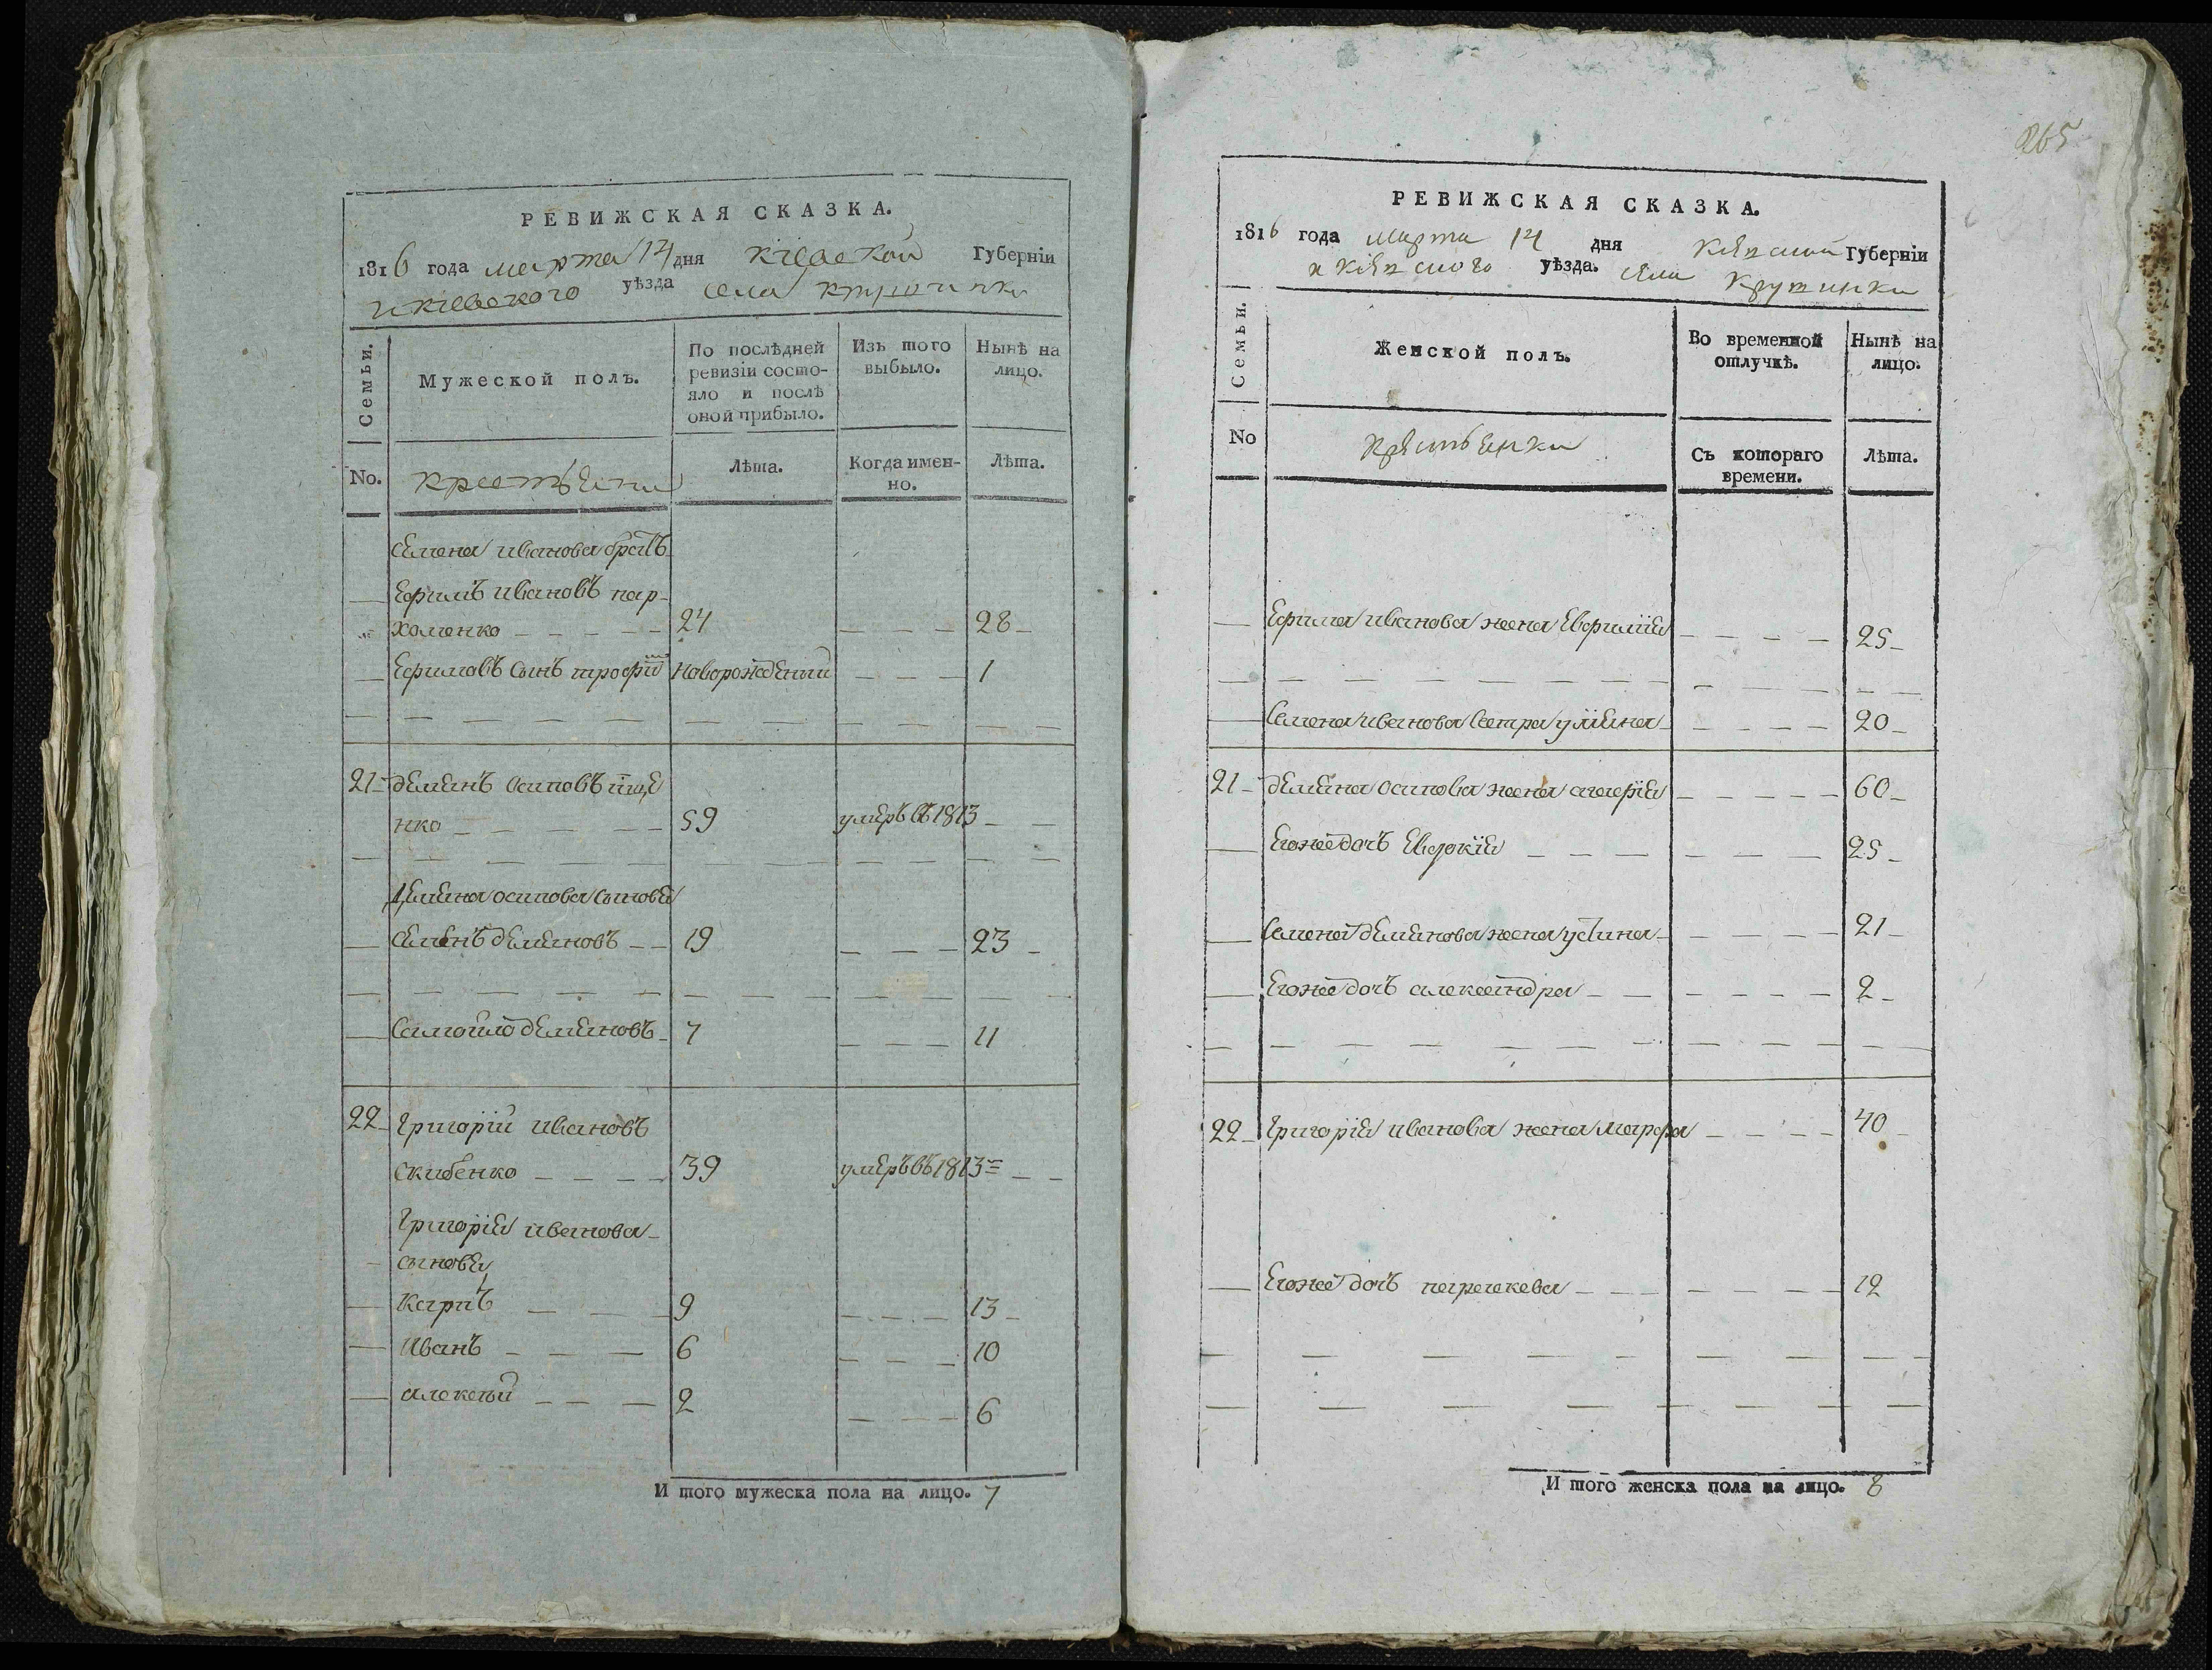 РЕВИЖСКАЯ СКАЗКА.
1816 года марта 14 дня Кіевской Губерніи
и кіевского уѣзда села
Семьи.
Мужеской полъ.
По послѣдней ревизіи состо-
яло и послѣ
оной прибыло.
Изъ того
выбыло.
Нынѣ на
лицо.
No.
крестьяни
Лѣта.
Когда имен-
но.
Лѣта.
Семена иванова братъ
Ефимъ ивановъ пар-
хоменко 24 28
Ефимовъ сынъ трофим новорожденый 1
21 демианъ осиповъ
нко 59 умеръ въ 1813
Демиана осипова сыновя
Семенъ демиановъ 19 23
Самойло демиановъ 7 11
22 Григорій ивановъ
скибенко 39 умеръ въ 1813
Григорія иванова
сыновя
Карпъ 9 13
Иванъ 6 10
алексей 2 6
И того мужеска пола на лицо. 7
265
РЕВИЖСКАЯ СКАЗКА.
1816 года марта 14 дня Губерніи
уѣзда. села Крушинки
Семьи.
Женской полъ.
Во временной
отлучкѣ.
Нынѣ на
лицо.
No
крестьянки
Съ котораго
времени.
Лѣта.
Ефима иванова жена Евфимія 25
Семена иванова сестра улиана 20
21 демиана осипова жена агафія 60
Егоже дочь Евдокія 25
Семена демианова жена устина 21
Егоже дочь александра 2
22 Григорія иванова жена марфа 40
Егоже дочь параскева 12
И того женска пола на лицо. 8